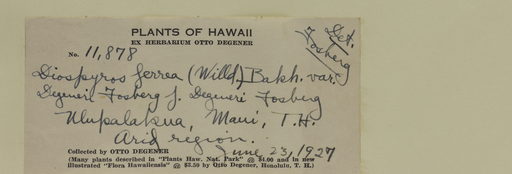 PLANTS OF HAWAII
EX HERBARIUM OTTO DEGENER
Det. Fosberg
No. 11,878
Diospyros ferrea (Willd.) Bakh. var.
Degeneri Fosberg f. Degeneri Fosberg
Ulupalakua, Maui, T.H.
Arid region.
June 23, 1927
Collected by OTTO DEGENER
(Many plants described in "Plants Haw. Nat. Park" @ $4.00 and in new
illustrated "Flora Hawaiiensis" @ $3.50 by Otto Degener, Honolulu, T. H.)